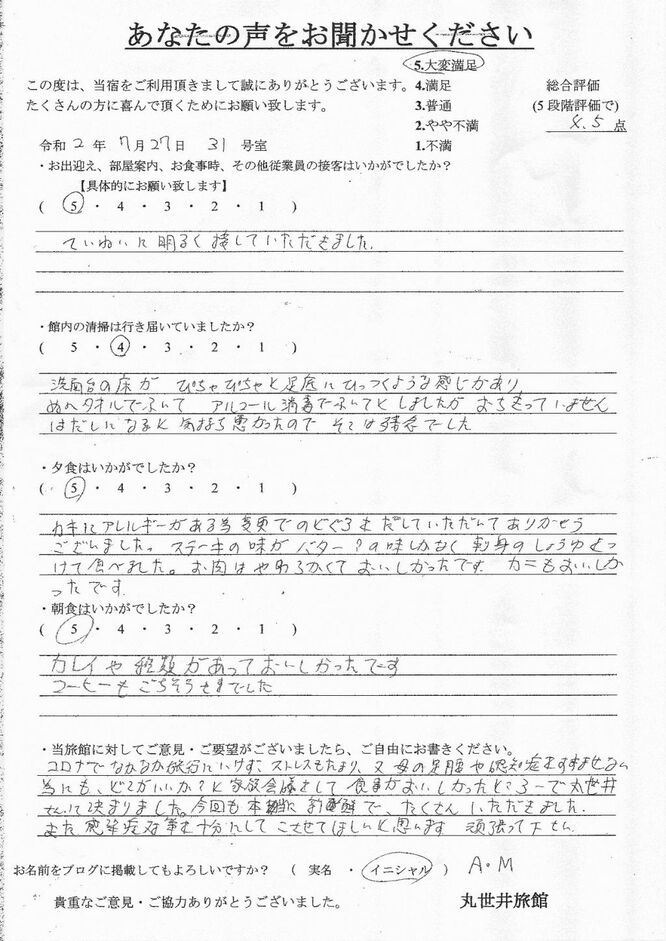 あなたの声をお聞かせください
この度は、当宿をご利用頂きまして誠にありがとうございます。
たくさんの方に喜んで頂くためにお願い致します。
5.大変満足
4.満足
3.普通
2.やや不満
1.不満
総合評価
(5段階評価で)
4.5点
令和2年7月27日 31号室
・お出迎え、部屋案内、お食事時、その他従業員の接客はいかがでしたか?
【具体的にお願い致します】
( 5 ・ 4 ・ 3 ・ 2 ・ 1 )
ていねいに明るく接していただきました.
・館内の清掃は行き届いていましたか?
( 5 ・ 4 ・ 3 ・ 2 ・ 1 )
洗面台の床が ぴちゃぴちゃと足底にひっつくような感じがあり
ぬれタオルでふいて アルコール消毒でふいてとしましたが おちきっていません
はだしになると気持ち悪かったので そこは残念でした
・夕食はいかがでしたか?
( 5 ・ 4 ・ 3 ・ 2 ・ 1 )
カキにアレルギーがある為変更でのどぐろをだしていただいてありがとう
ございました。ステーキの味がバター?の味しかなく刺身のしょうゆをつ
けて食べました。お肉はやわらかくておいしかったです カニもおいしか
ったです.
・朝食はいかがでしたか?
( 5 ・ 4 ・ 3 ・ 2 ・ 1 )
カレイや種類があっておいしかったです
コーヒーもごちそうさまでした
・当旅館に対してご意見・ご要望がございましたら、ご自由にお書きください。
コロナでなかなか旅行にいけず、ストレスもたまり、又 母の足腰や認知症をすすませない
為にも、どこがいいか?と家族会議をして 食事がおいしかったところーで丸世井
さんに決まりました。今回も本当に新鮮で、たくさんいただきました.
また 感染症対策を十分にして こさせてほしいと思います 頑張って下さい
お名前をブログに掲載してもよろしいですか? ( 実名 ・ イニシャル ) A・M
貴重なご意見・ご協力ありがとうございました。
丸世井旅館